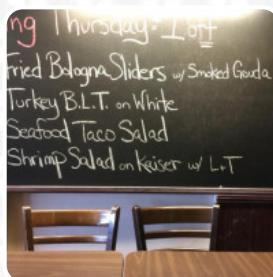 ng Thursday: 1 off
Fried Bologna Sliders w/ Smoked Gouda
Turkey B.L.T. on White
Seafood Taco Salad
Shrimp Salad on Kaiser w/ L+T